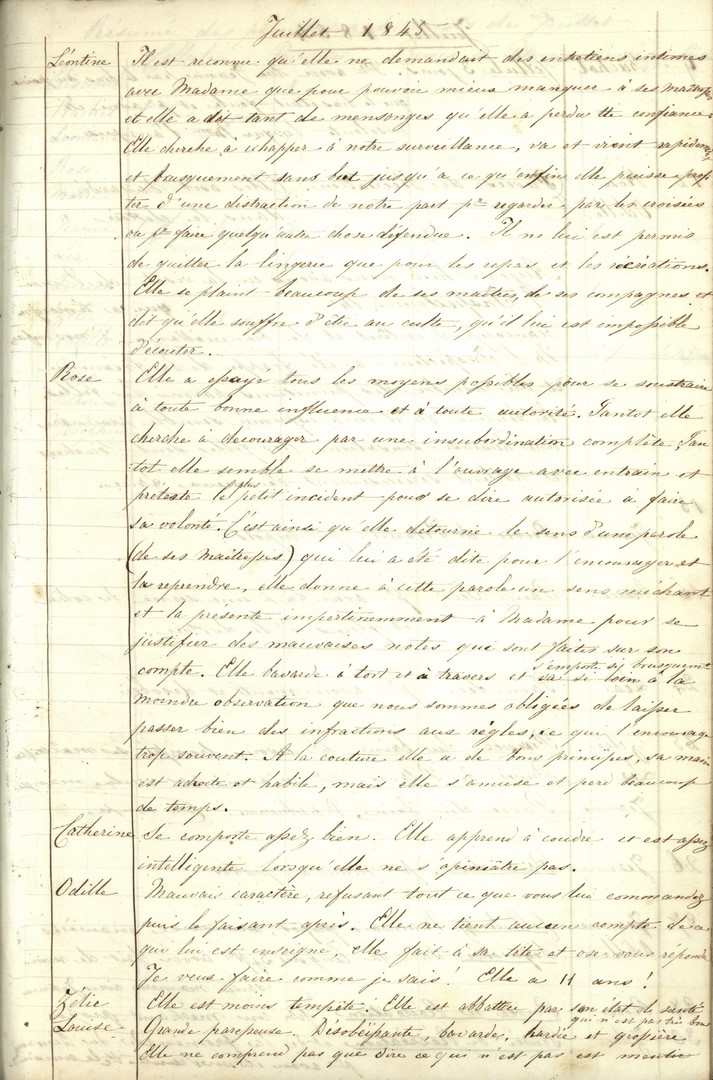 Juillet 1845
Léontine Il est reconnu qu'elle ne demandait des entretiens intimes
avec Madame que pour pouvoir mieux manquer à ses maîtresses
et elle a dit tant de mensonges qu'elle a perdu tte confiance.
Elle cherche à échapper à notre surveillance, va et vient rapidement
et brusquement sans but jusqu'à ce qu'enfin elle puisse profi
ter d'une distraction de notre part pr regarder par les croisées
ou pr faire quelqu'autre chose défendue. Il ne lui est permis
de quitter la lingerie que pour les repas et les récréations.
Elle se plaint beaucoup de ses maîtres, de ses compagnes et
dit qu'elle souffre d'être au culte, qu'il lui est impossible
d'écouter.
Rose Elle a essayé tous les moyens possibles pour se soustraire
à toute bonne influence et à toute autorité. Tantot elle
cherche à décourager par une insubordination complète, Tan
tot elle semble se mettre à l'ouvrage avec entrain et
pretexte le plus petit incident pour se dire autorisée à faire
sa volonté. C'est ainsi qu'elle détourne le sens d'une parole
(de ses Maîtresses) qui lui a été dite pour l'encourager et
la reprendre, elle donne à cette parole un sens méchant
et la présente impertinemment à Madame pour se
justifier des mauvaises notes qui sont faites sur son
compte. Elle bavarde à tort et à travers et s'emporte si brusquement
va si loin à la
moindre observation que nous sommes obligées de laisser
passer bien des infractions aux règles, ce que l'encourage
trop souvent. A la couture elle a de bons principes, sa main
est adroite et habile, mais elle s'amuse et perd beaucoup
de temps.
Catherine Se comporte assez bien. Elle apprend à coudre et est assez
intelligente lorsqu'elle ne s'opiniâtre pas.
Odille Mauvais caractère, refusant tout ce que vous lui commandez
puis le faisant après. Elle ne tient aucun compte de ce
qui lui est enseigné, elle fait à sa tête et ose vous répondre
Je veux faire comme je sais! Elle a 11 ans!
Zélie Elle est moins tempête. Elle est abbattue par son état de santé
qui n'est pas très bon
Louise Grande paresseuse. Désobéissante, bavarde, hardie et grossière
Elle ne comprend pas que dire ce qui n'est pas est mentir